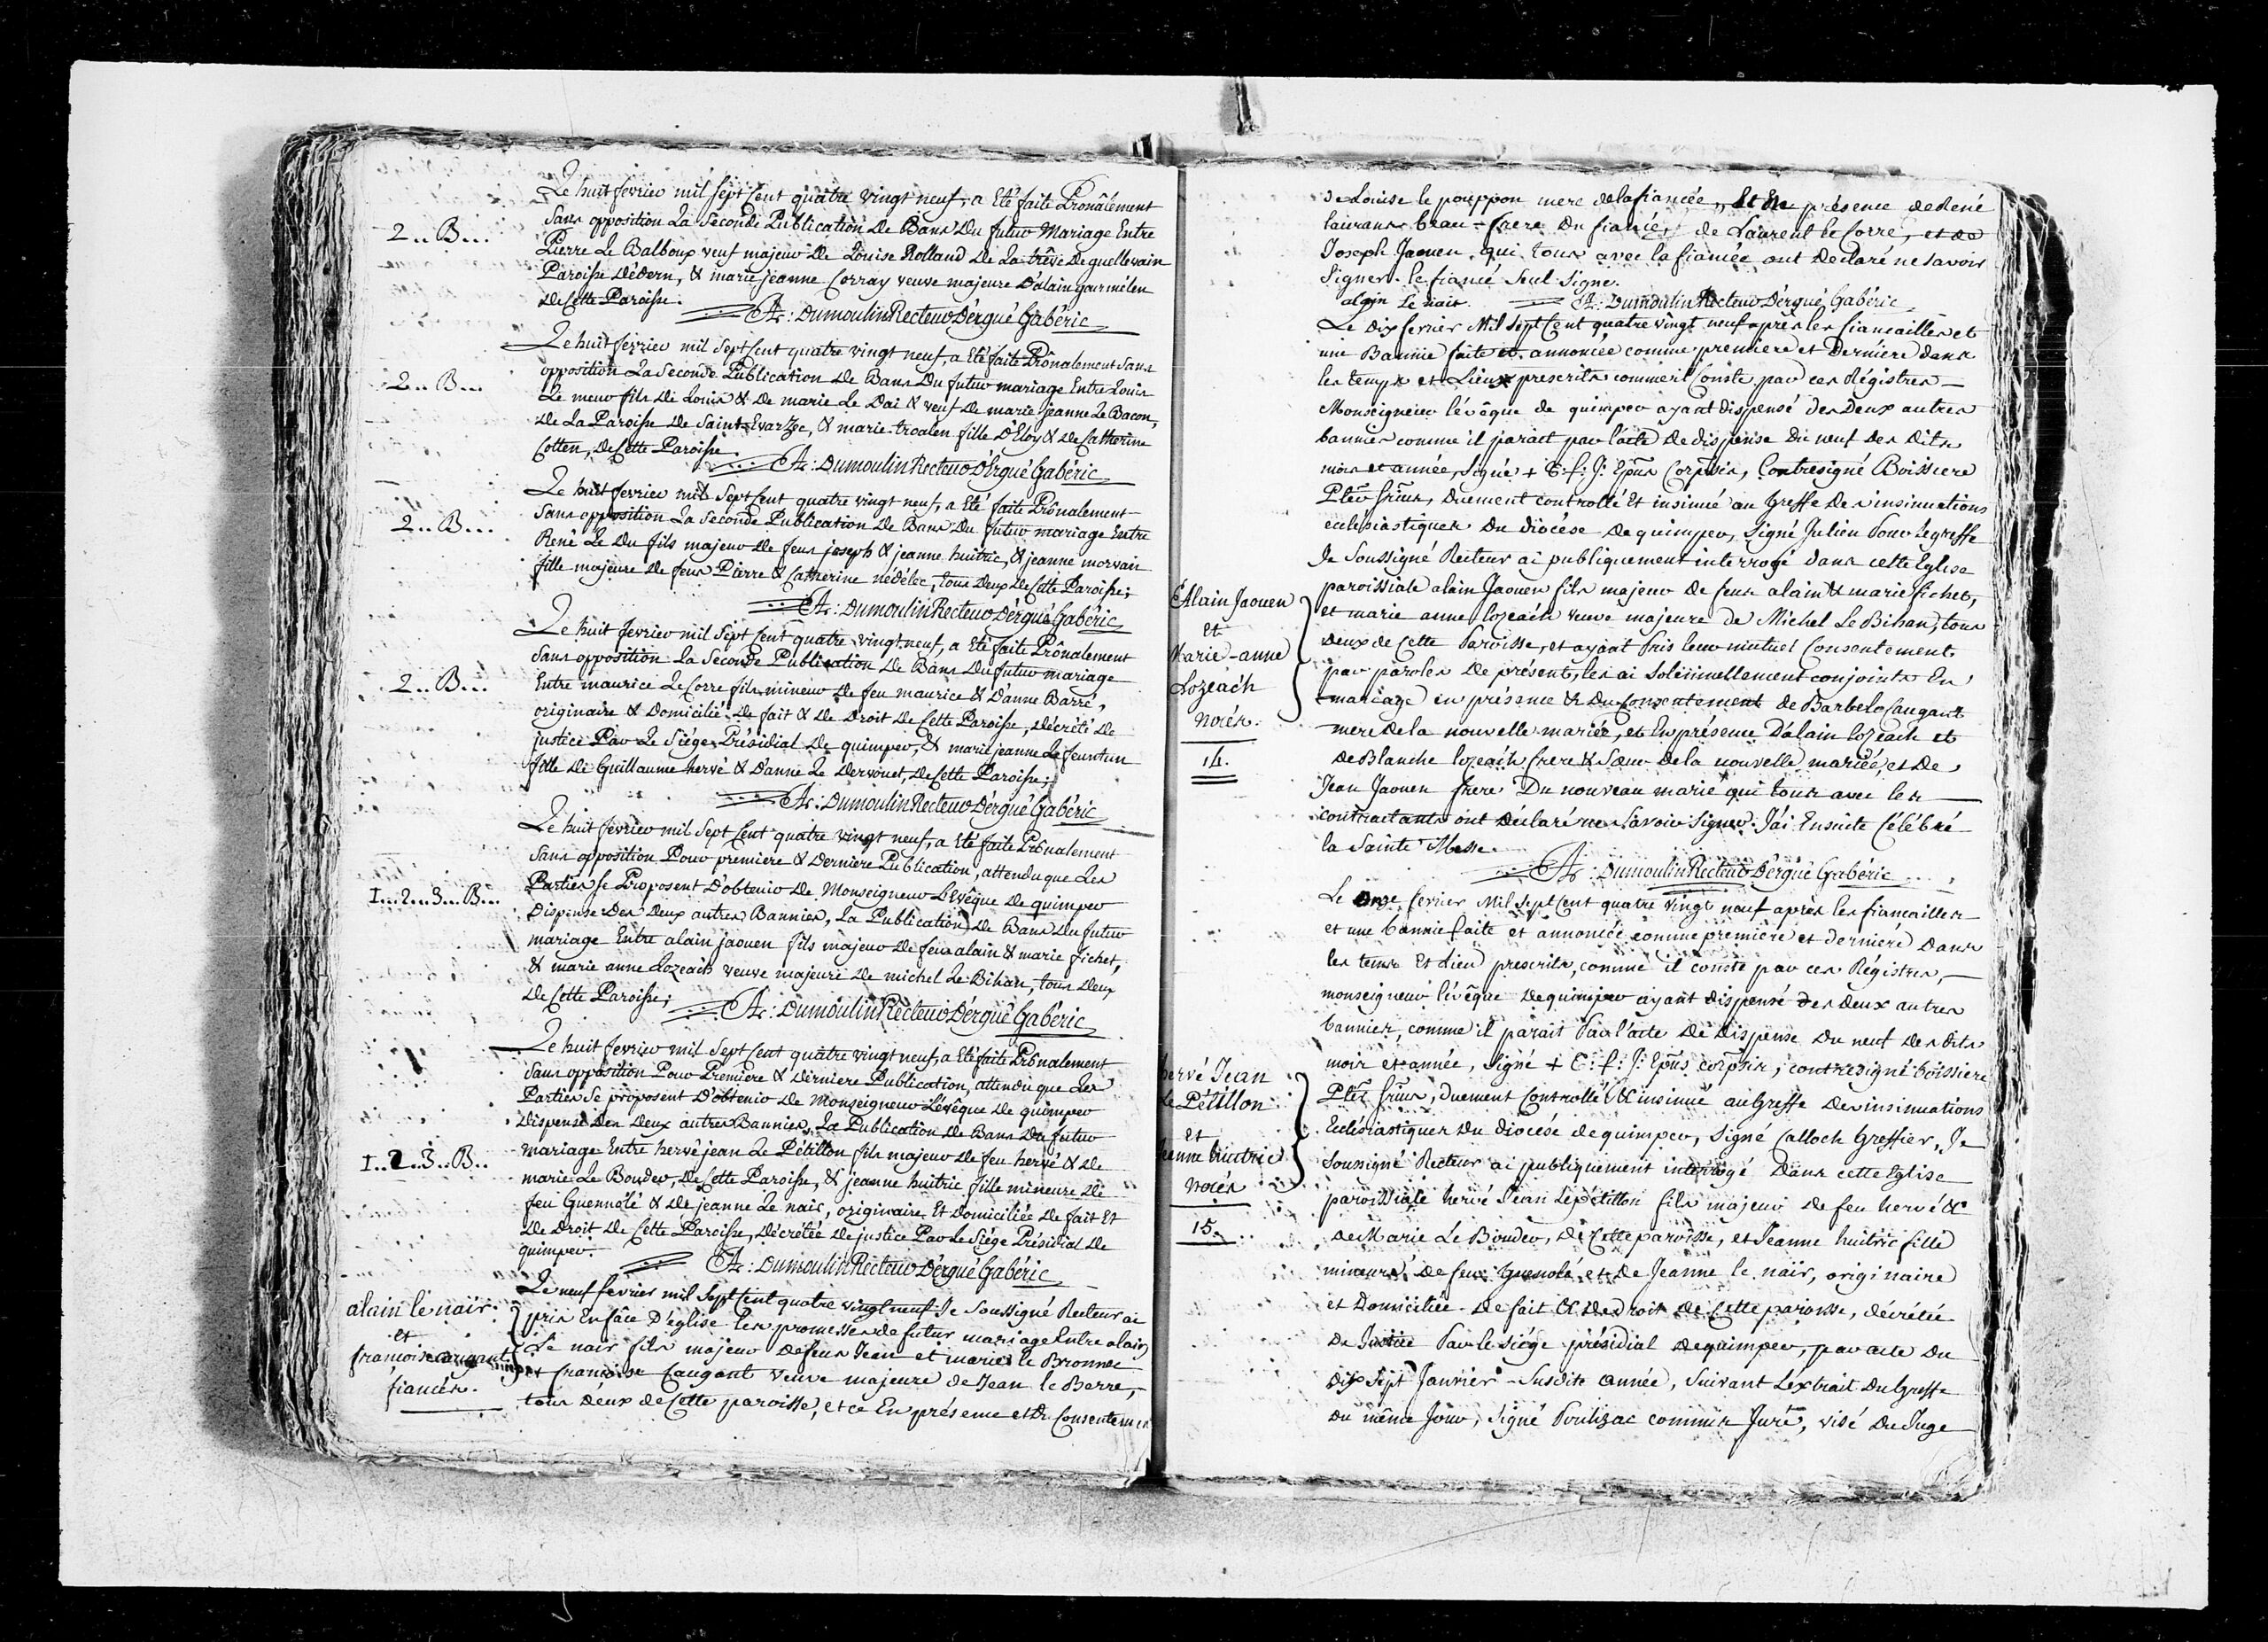 Le huit fevrier mil sept cent quatre vingt neuf, a Eté faite Prônalement
2.. B...
sans opposition La Seconde Publication De Bans Du futur Mariage Entre
Pierre Le Balboux veuf majeur De Louise Rolland De La trêve De quellevain
Paroisse D'édern, & marie jeanne Corray veuve majeure D'alain gourmélen
De Cette Paroisse.
A: Dumoulin Recteur D'ergué Gabéric
Le huit fevrier mil Sept Cent quatre vingt neuf, a Eté faite Prônalement Sans
2.. B...
opposition La Seconde Publication De Bans Du futur mariage Entre Louis
Le meur fils De Louis & De marie Le Dai & veuf De marie jeanne Le Bacon,
De La Paroisse De Saint Evarzec, & marie troalen fille D'Eloy & De Catherine
Cotten, De Cette Paroisse.
A: Dumoulin Recteur D'Ergué Gabéric
Le huit fevrier mil Sept Cent quatre vingt neuf, a Eté faite Prônalement
2.. B...
Sans opposition La Seconde Publication De Bans Du futur mariage Entre
René Le Du fils majeur De feus joseph & jeanne huitric, & jeanne morvan
fille majeure De feus Pierre & Catherine nédélec, tous Deux De Cette Paroisse;
A: Dumoulin Recteur D'ergué Gabéric
Le huit fevrier mil Sept Cent quatre vingt neuf, a Eté faite Prônalement
Sans opposition La Seconde Publication De Bans Du futur mariage
2.. B...
Entre maurice Le Corre fils mineur De feu maurice & D'anne Barré,
originaire & Domicilié De fait & De Droit De Cette Paroisse, Décrété De
justice Par Le Siége Présidial De quimper, & marie jeanne Le feuntun
fille De Guillaume hervé & D'anne Le Dervouet, De Cette Paroisse;
A: Dumoulin Recteur D'ergué Gabéric
Le huit fevrier mil Sept Cent quatre vingt neuf, a Eté faite Prônalement
Sans opposition Pour premiere & Derniere Publication, attendu que Les
1...2...3...B...
Parties se Proposent D'obtenir De Monseigneur L'evêque De quimper
Dispense Des Deux autres Bannies, La Publication De Bans Du futur
mariage Entre alain jaouen fils majeur De feus alain & marie fichet,
& marie anne Lozeach veuve majeure De michel Le Bihan, tous Deux
De Cette Paroisse;
A: Dumoulin Recteur D'ergué Gabéric
Le huit fevrier mil Sept Cent quatre vingt neuf, a Eté faite Prônalement
Sans opposition Pour Premiere & Derniere Publication, attendu que Les
Parties Se proposent D'obtenir De Monseigneur L'évêque De quimper
Dispense Des Deux autres Bannies, La Publication De Bans Du futur
1..2..3..B..
mariage Entre hervé jean Le Pétillon fils majeur De feu hervé & De
marie Le Bouder, De Cette Paroisse, & jeanne huitric fille mineure De
feu Guennolé & De jeanne Le nair, originaire Et Domiciliée De fait Et
De Droit De Cette Paroisse, Décrétée De justice Par Le Siége Présidial De
quimper.
A: Dumoulin Recteur D'ergué Gabéric
alain le nair
et
francoise caugant
fiancés.
Le neuf fevrier mil Sept Cent quatre vingt neuf Je Soussigné Recteur ai
pris En fâce D'église les promesses de futur mariage Entre alain
Le nair fils majeur De feus Jean et marie le Bronnec
et francoise Caugant veuve majeure de Jean le Berre,
tous deux de Cette paroisse, et ce En présence et Du Consentement
de Louise le pouppon mere de la fiancée, Et En présence de René
laurans beau-frere Du fiancé, de Laurent le Corre, et de
Joseph Jaouen, qui tous avec la fiancée ont Declaré ne Savoir
Signer. le fiancé Seul Signe.
alain Le nair. A: Dumoulin Recteur D'ergué Gabéric
Le Dix fevrier Mil Sept Cent quatre vingt neuf après les fiancailles et
une Bannie faite et annoncée comme premiere et Derniere dans
les temps et Lieux prescrits comme il Conste par ces Régistres —
Monseigneur l'évêque de quimper ayant dispensé des Deux autres
bannies comme il parait par l'acte De dispense Du neuf Des Dits
mois et année, Signé + T: f: J: Epus Corpsis, Contresigné Boissiere
Pter srius, Duement controllé Et insinué au Greffe Des insinuations
ecclesiastiques Du diocése De quimper, Signé Julien Pour Le greffe
Je Soussigné Recteur ai publiquement interrogé dans cette Eglise
Alain Jaouen
et
Marie-anne
Lozeach
nocés.
14.
paroissiale alain Jaouen fils majeur De feus alain & marie fichet,
et marie anne lozeach veuve majeure de Michel Le Bihan, tous
deux de Cette Paroisse, et ayant Pris leur mutuel Consentement
par paroles De présent, les ai Solennellement conjoints En
mariage en présence & Du Consentement de Barbe le Caugant
mere de la nouvelle mariée, et En présence D'alain lozeach et
De Blanche lozeach frere & Sœur de la nouvelle mariée, et De
Jean Jaouen frere Du nouveau marié qui tous avec les
contractants ont déclaré ne Savoir Signer. J'ai Ensuite Célébré
la Sainte Messe.
A: Dumoulin Recteur D'ergué Gabéric
Le onze fevrier Mil Sept Cent quatre vingt neuf après les fiancailles
et une bannie faite et annoncée comme premiere et derniere Dans
les tems Et Lieu prescrits, comme il conste par ces Régistres, —
monseigneur l'évêque De quimper ayant dispensé des Deux autres
bannies, comme il parait Par l'acte De Dispense Du neuf Des dits
hervé Jean
Le Pétillon
et
Jeanne huitric
nocés
15.
mois et année, Signé + T: f: J: Epus corpsis, contresigné boissiere
Pter srius, duement Controllé & insinué au Greffe Des insinuations
Ecclésiastiques Du diocése de quimper, Signé Calloch Greffier, Je
Soussigné Recteur ai publiquement interrogé Dans cette Eglise
paroissiale hervé Jean Le pétillon fils majeur De feu hervé &
De Marie Le Bouder, De Cette paroisse, et Jeanne huitric fille
mineure De feu Guenolé et De Jeanne le nair, originaire
et Domiciliée De fait & De Droit De Cette paroisse, décrétée
De Justice Par le siége présidial de quimper, par acte Du
dix Sept Janvier Susdite année, Suivant L'extrait Du Greffe
Du même Jour, Signé Poulizac commis Juré, visé Du Juge